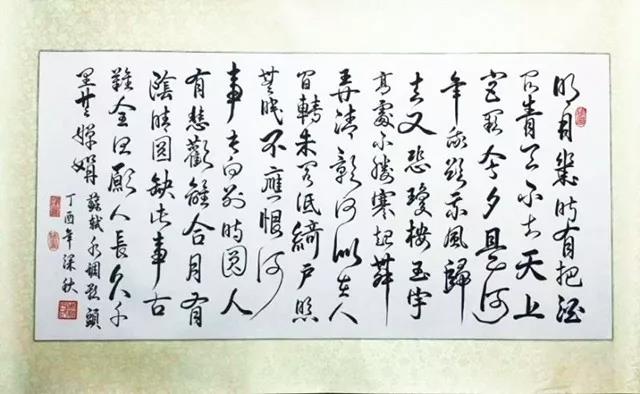 明月幾时有把酒
问青天不知天上
宫阙今夕是何
年我欲乘风歸
去又恐瓊楼玉宇
高處不勝寒起舞
弄清影何似在人
间轉朱阁低綺户照
無眠不應恨何
事长向别时圆人
有悲歡離合月有
陰晴圆缺此事古
難全但願人長久千
里共嬋娟
蘇軾水調歌頭
丁酉年深秋